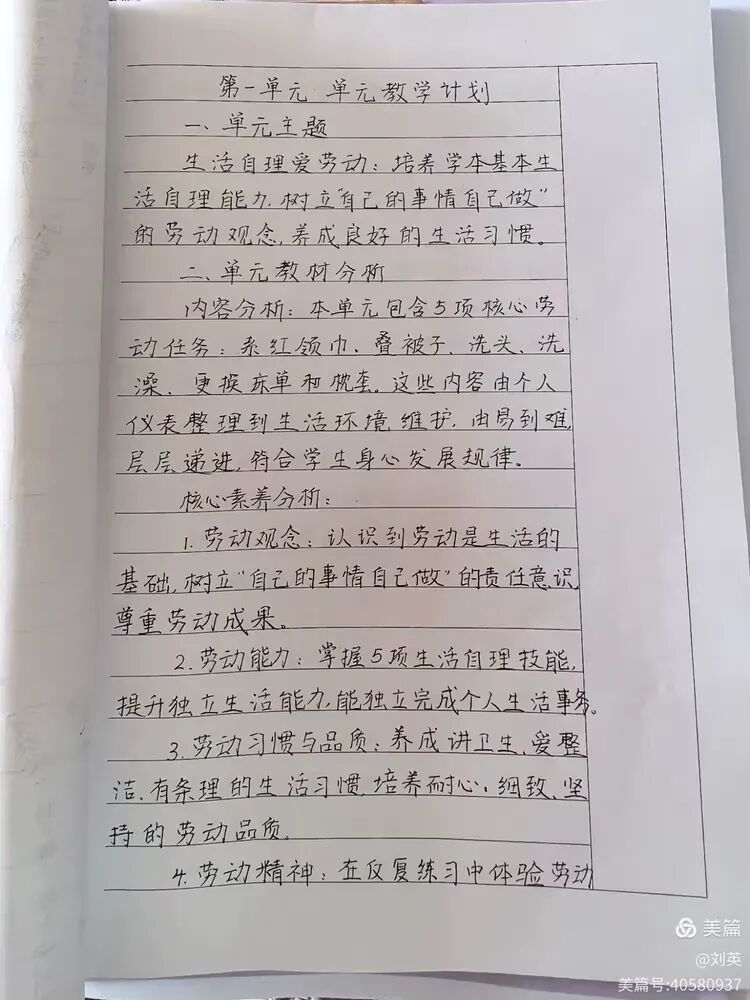 第一单元 单元教学计划
一、单元主题
生活自理爱劳动：培养学本基本生
活自理能力,树立"自己的事情自己做"
的劳动观念,养成良好的生活习惯。
二、单元教材分析
内容分析：本单元包含5项核心劳
动任务：系红领巾、叠被子、洗头、洗
澡、更换床单和枕套。这些内容由个人
仪表整理到生活环境维护,由易到难,
层层递进,符合学生身心发展规律。
核心素养分析：
1.劳动观念：认识到劳动是生活的
基础,树立"自己的事情自己做"的责任意识,
尊重劳动成果。
2.劳动能力：掌握5项生活自理技能,
提升独立生活能力,能独立完成个人生活事务。
3.劳动习惯与品质：养成讲卫生、爱整
洁、有条理的生活习惯,培养耐心、细致、坚
持的劳动品质。
4.劳动精神：在反复练习中体验劳动
美篇
@刘英
美篇号:40580937